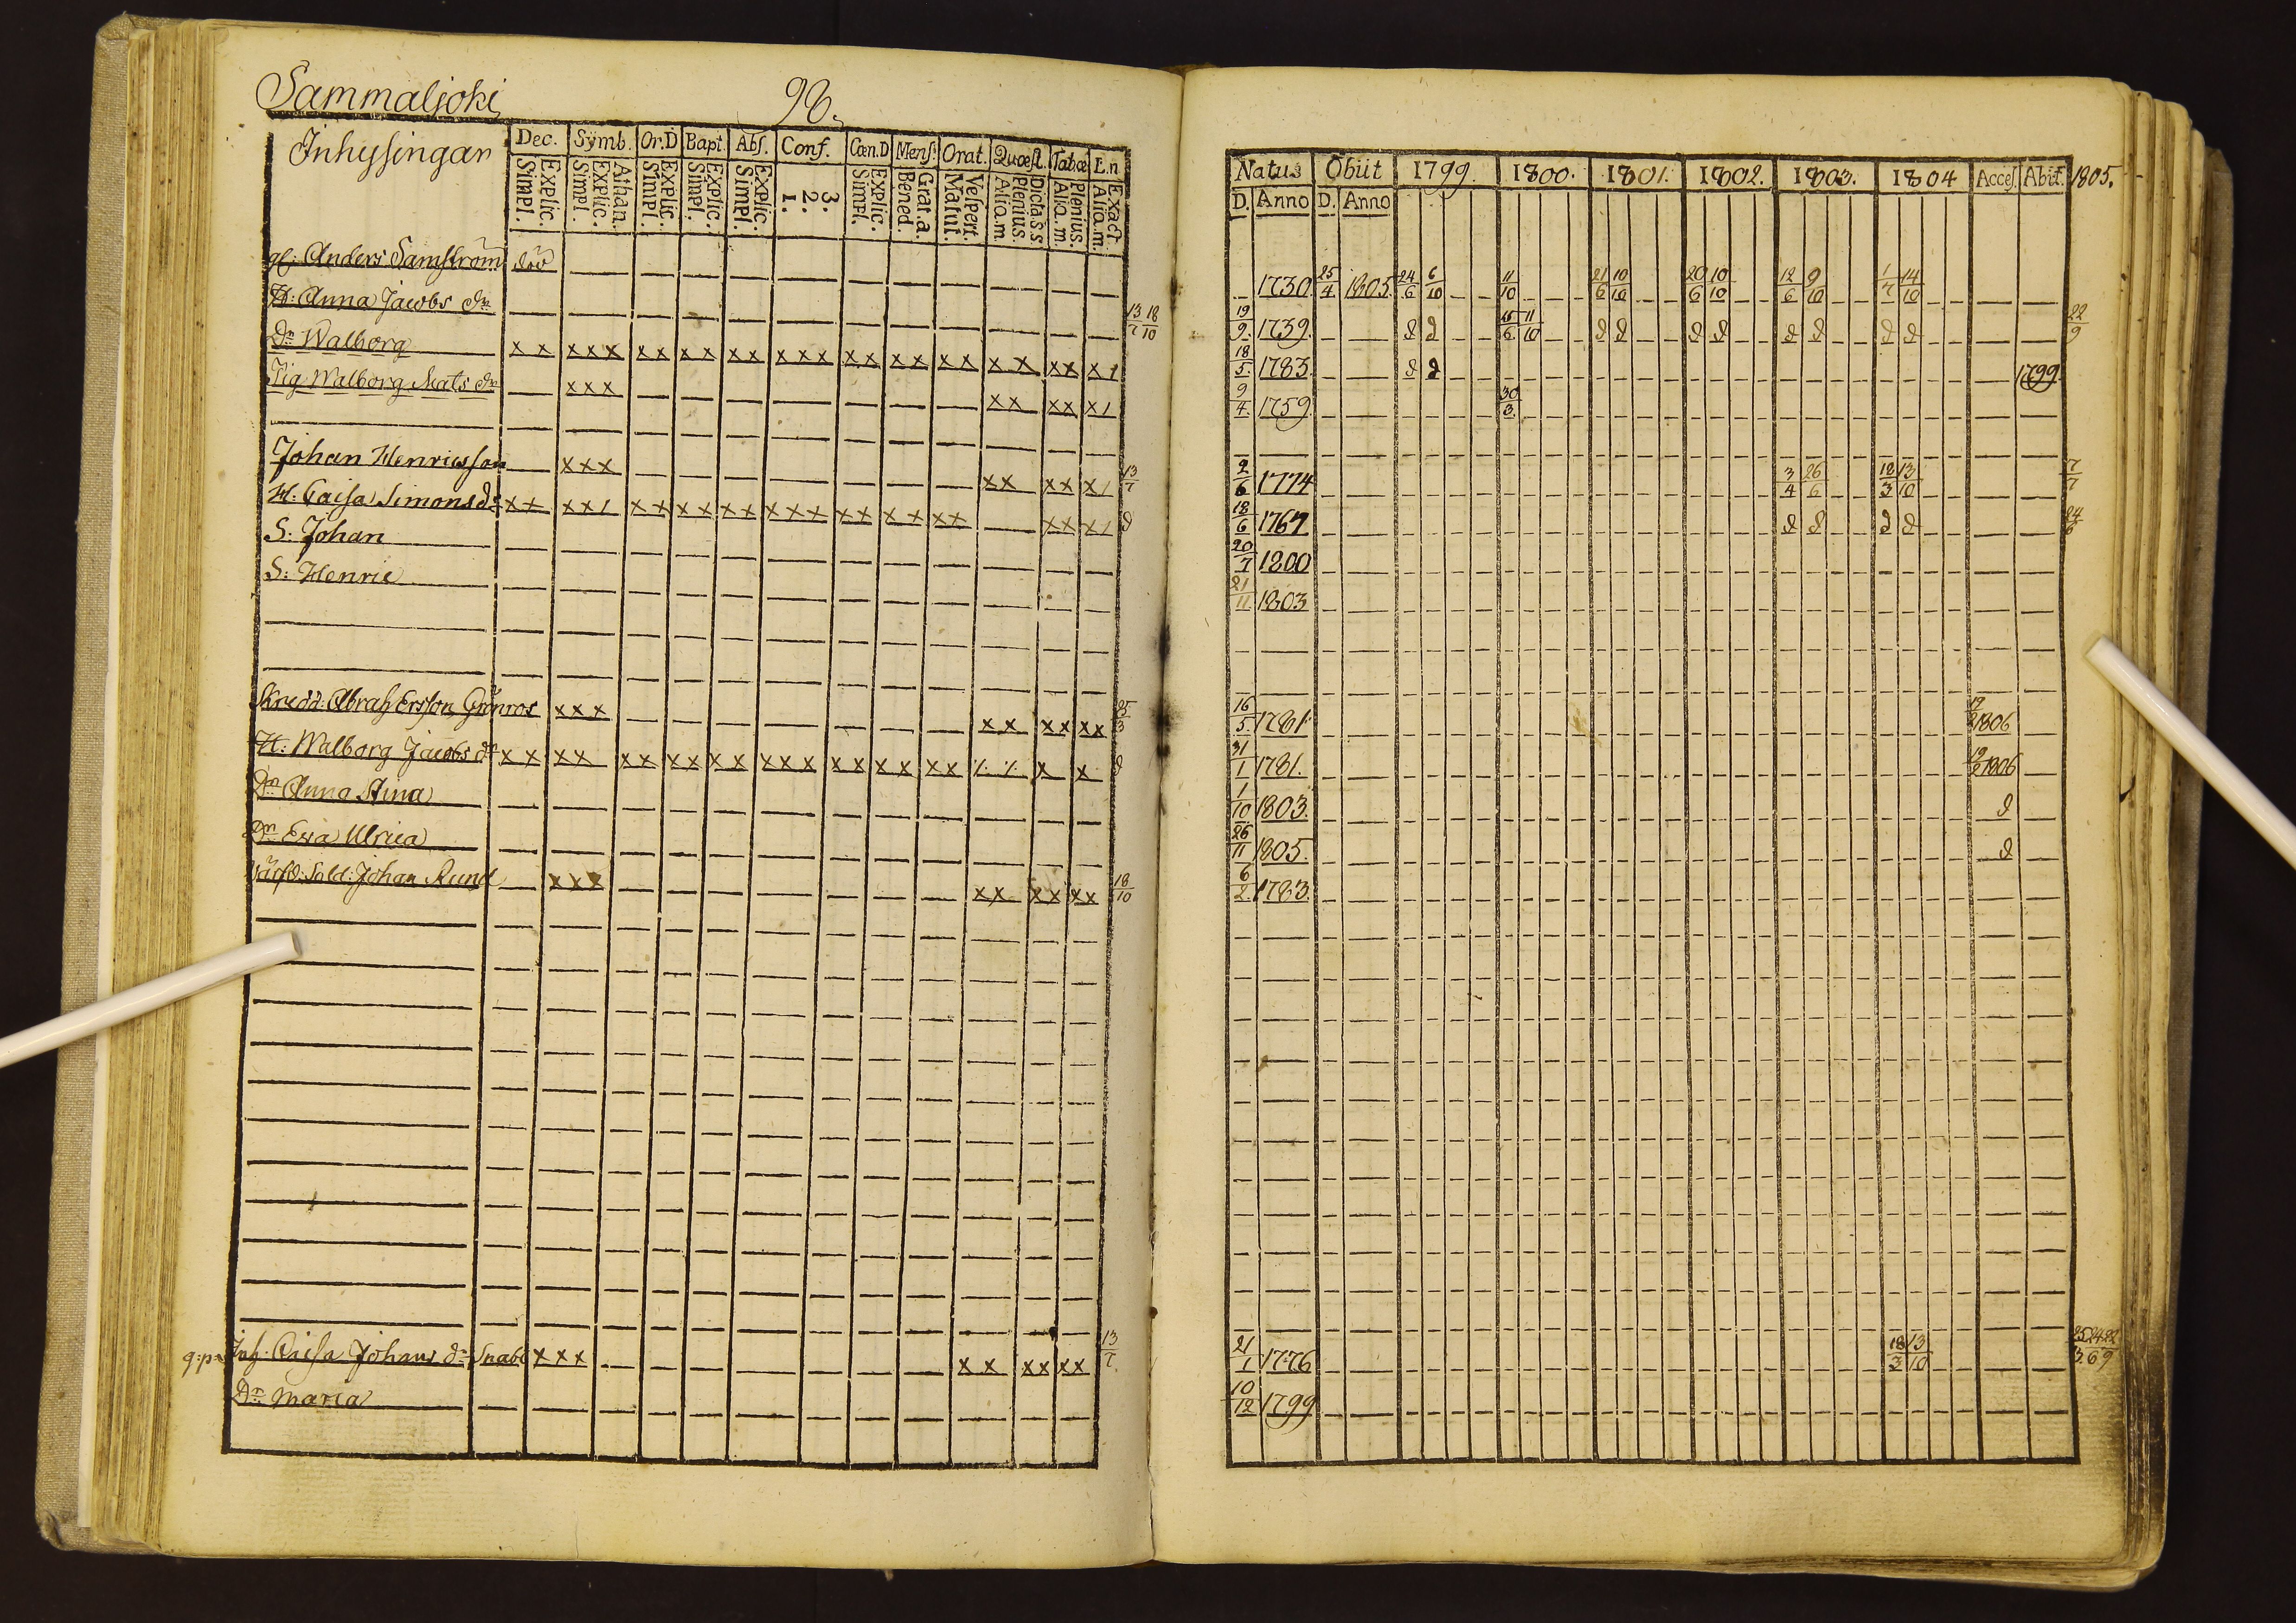 Sammaljoki
98.
Inhysingar
Dec. Symb. Or.D Bapt. Abs. Conf. Cœn.D Mens. Orat. Quœst. Tab.œ L.n
Simpl. Explic. Simpl. Explic. Athan. Simpl. Explic. Simpl. Explic. Simpl. Explic. 1. 2. 3. Simpl. Explic. Bened. Grat.a. Matut. Vespert. Alia.m. Plenius. Dicta.s.s. Alia.m. Plenius. Alia.m. Exact.
gl: Anders Samström döv
H: Anna Jacobs dr 13/7 18/10
Dr Walborg x x x x x x x x x x x x x x x x x x x x x x x x x x 1
Pig Walborg Mats dr x x x x x x x x 1
Johan Henricsson x x x x x x x x 1 13/7
H: Caisa Simons dr x x x x 1 x x x x x x x x x x x x x x x x x x x 1 d
S: Johan
S: Henric
Skredd: Abrah Ersson Grönros x x x x x x x x x 25/3
H: Walborg Jacobs dr x x x x x x x x x x x x x x x x x x x ٪ ٪ x x d
Dr Anna Stina
Dr Eva Ulrica
Värfd: Sold: Johan Rund x x x x x x x x x 18/10
q:p: Inh: Caisa Johans dr Snabb x x x x x x x x x 13/7
Dr Maria
Natus Obiit 1799. 1800. 1801. 1802. 1803. 1804 Acces. Abit. 1805.
D. Anno D. Anno
1730 25/4 1805 24/6 6/10 11/10 21/6 10/10 20/6 10/10 12/6 9/10 1/7 14/10
19/9 1739. d d 15/6 11/10 d d d d d d d d 22/9
18/5 1783 d d 1799
9/4 1759 30/3
2/6 1774 3/4 26/6 18/3 13/10 7/7
18/6 1767 d d d d 24/6
20/7 1800
21/11 1803
16/5 1781 19/2 1806
31/1 1781. 19/2 1806
1/10 1803. d
26/11 1805. d
6/2 1783.
21/1 1776 18/3 13/10 25/3 24/6 22/9
10/12 1799